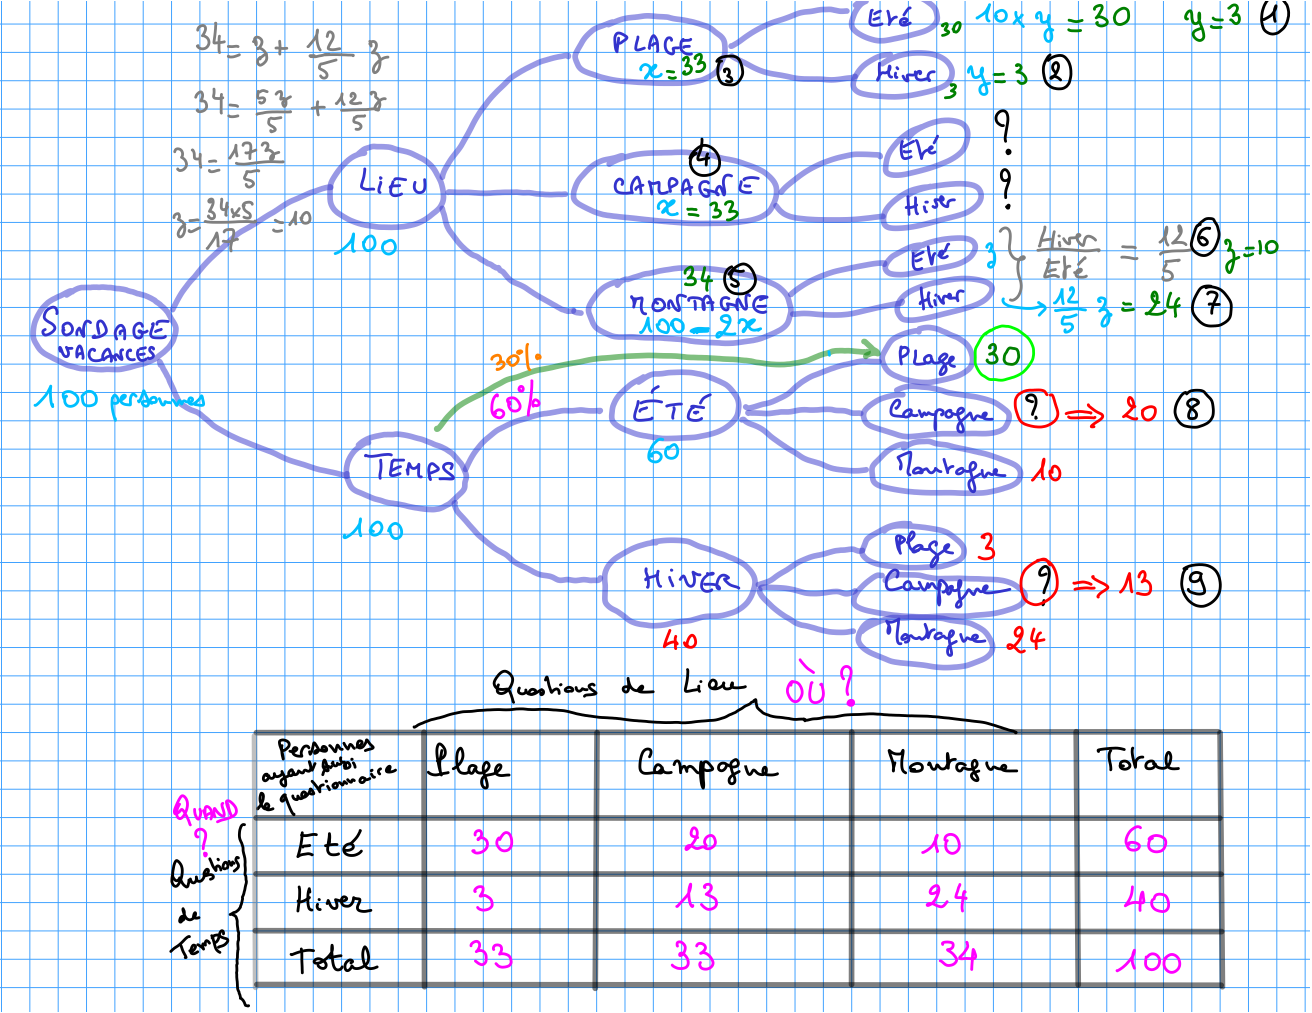 34 = z + 12/5 z
34 = 5z/5 + 12z/5
34 = 17z/5
z = 34×5/17 = 10
SONDAGE
VACANCES
100 personnes
LIEU
100
TEMPS
100
PLAGE
x = 33 ③
Eté 30 10 × y = 30 y = 3 ①
Hiver 3 y = 3 ②
④
CAMPAGNE
x = 33
Eté ?
Hiver ?
34 ⑤
MONTAGNE
100 - 2x
Eté z } Hiver/Eté = 12/5 ⑥ z = 10
Hiver → 12/5 z = 24 ⑦
30%
60%
ÉTÉ
60
Plage 30
Campagne ? ⇒ 20 ⑧
Montagne 10
HIVER
40
Plage 3
Campagne ? ⇒ 13 ⑨
Montagne 24
Questions de Lieu OÙ ?
QUAND
?
Questions
de
Temps
Personnes
ayant subi
le questionnaire
Plage Campagne Montagne Total
Eté 30 20 10 60
Hiver 3 13 24 40
Total 33 33 34 100